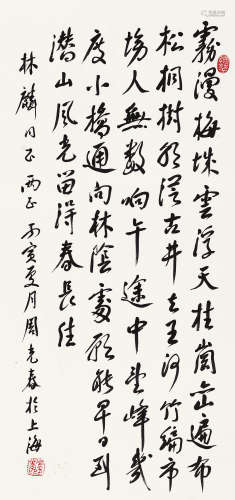 霧漫梅城雲浮天柱崗巒遍布
松桐樹影溪古井王河竹編市
場人無數响午途中望峰幾
度小橋通向林陰處願能早日到
潛山風光留得春長住
林麟同正両正丙寅夏月周克春於上海